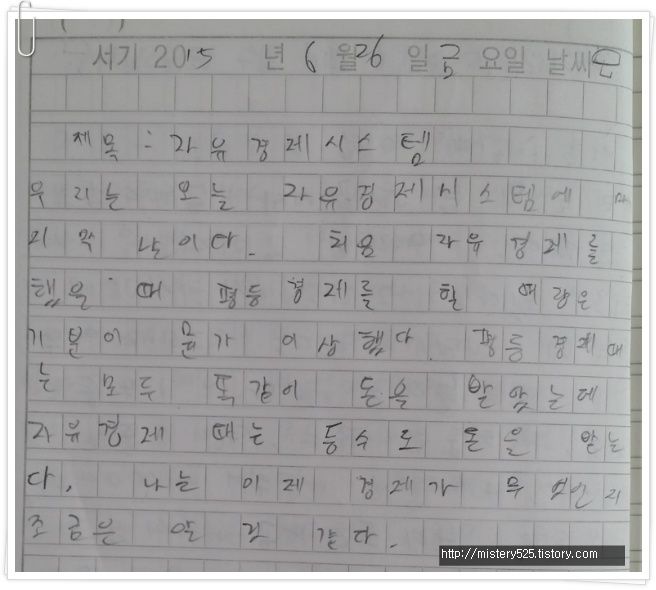 서기 2015 년 6 월 26 일 금 요일 날씨
제목 : 자유경제시스템
우리는 오늘 자유경제시스템에 마
지막 날이다. 처음 자유경제를
했을 때 평등경제를 할 때랑은
기분이 뭔가 이상했다. 평등경제때
는 모두 똑같이 돈을 받았는데
자유경제 때는 등수로 돈을 받는
다. 나는 이제 경제가 무엇인지
조금은 알 것 같다.
http://mistery525.tistory.com